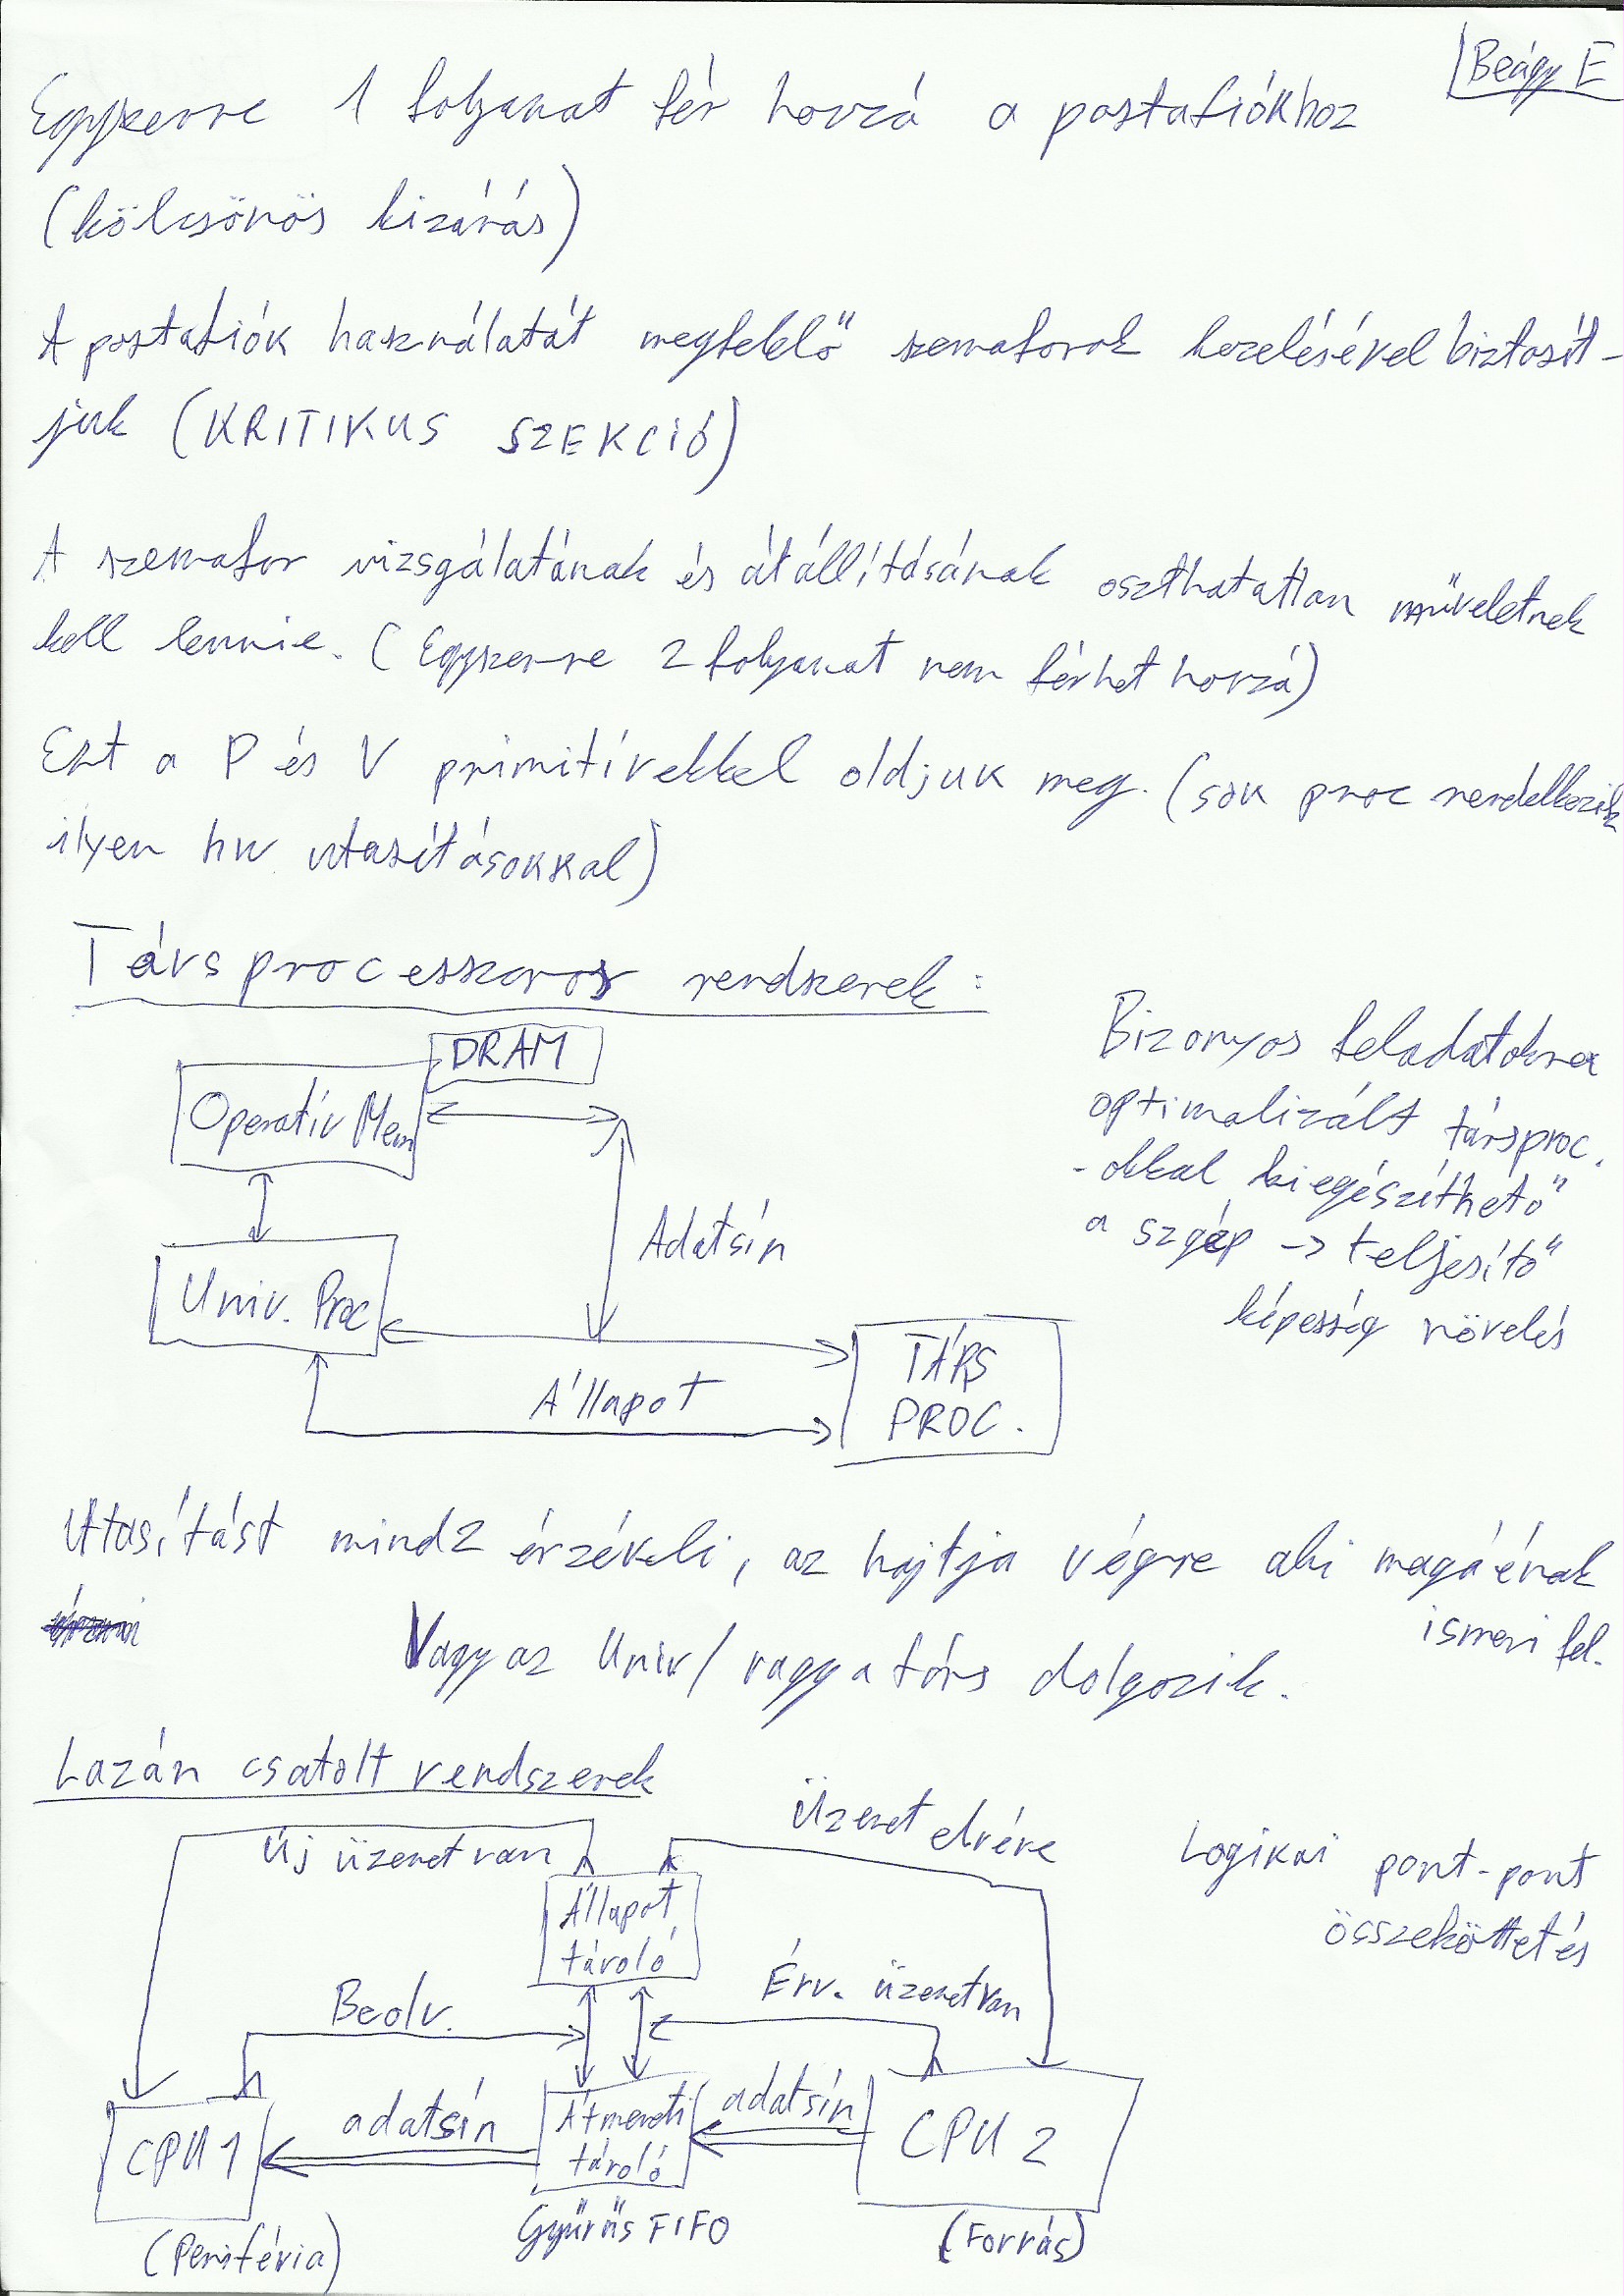 Beágy E
Egyszerre 1 folyamat fér hozzá a postafiókhoz
(kölcsönös kizárás)
A postafiók használatát megfelelő szemaforok kezelésével biztosít-
juk (KRITIKUS SZEKCIÓ)
A szemafor vizsgálatának és átállításának oszthatatlan műveletnek
kell lennie. (Egyszerre 2 folyamat nem férhet hozzá)
Ezt a P és V primitívekkel oldjuk meg. (sok proc rendelkezik
ilyen hw utasításokkal)
Társprocesszoros rendszerek:
DRAM
Operatív Mem
Adatsín
Univ. Proc
Állapot
TÁRS
PROC.
Bizonyos feladatokra
optimalizált társproc.
-okkal kiegészíthető
a szgép -> teljesítő
képesség növelés
Utasítást mind2 érzékeli, az hajtja végre aki magáénak
ismeri fel.
Vagy az Univ/ vagy a társ dolgozik.
Lazán csatolt rendszerek
Új üzenet van
Üzenet elvéve
Logikai pont-pont
összeköttetés
Állapot
tároló
Beolv.
Érv. üzenet van
CPU 1
adatsín
Átmeneti
tároló
adatsín
CPU 2
(Periféria)
Gyűrűs FIFO
(Forrás)